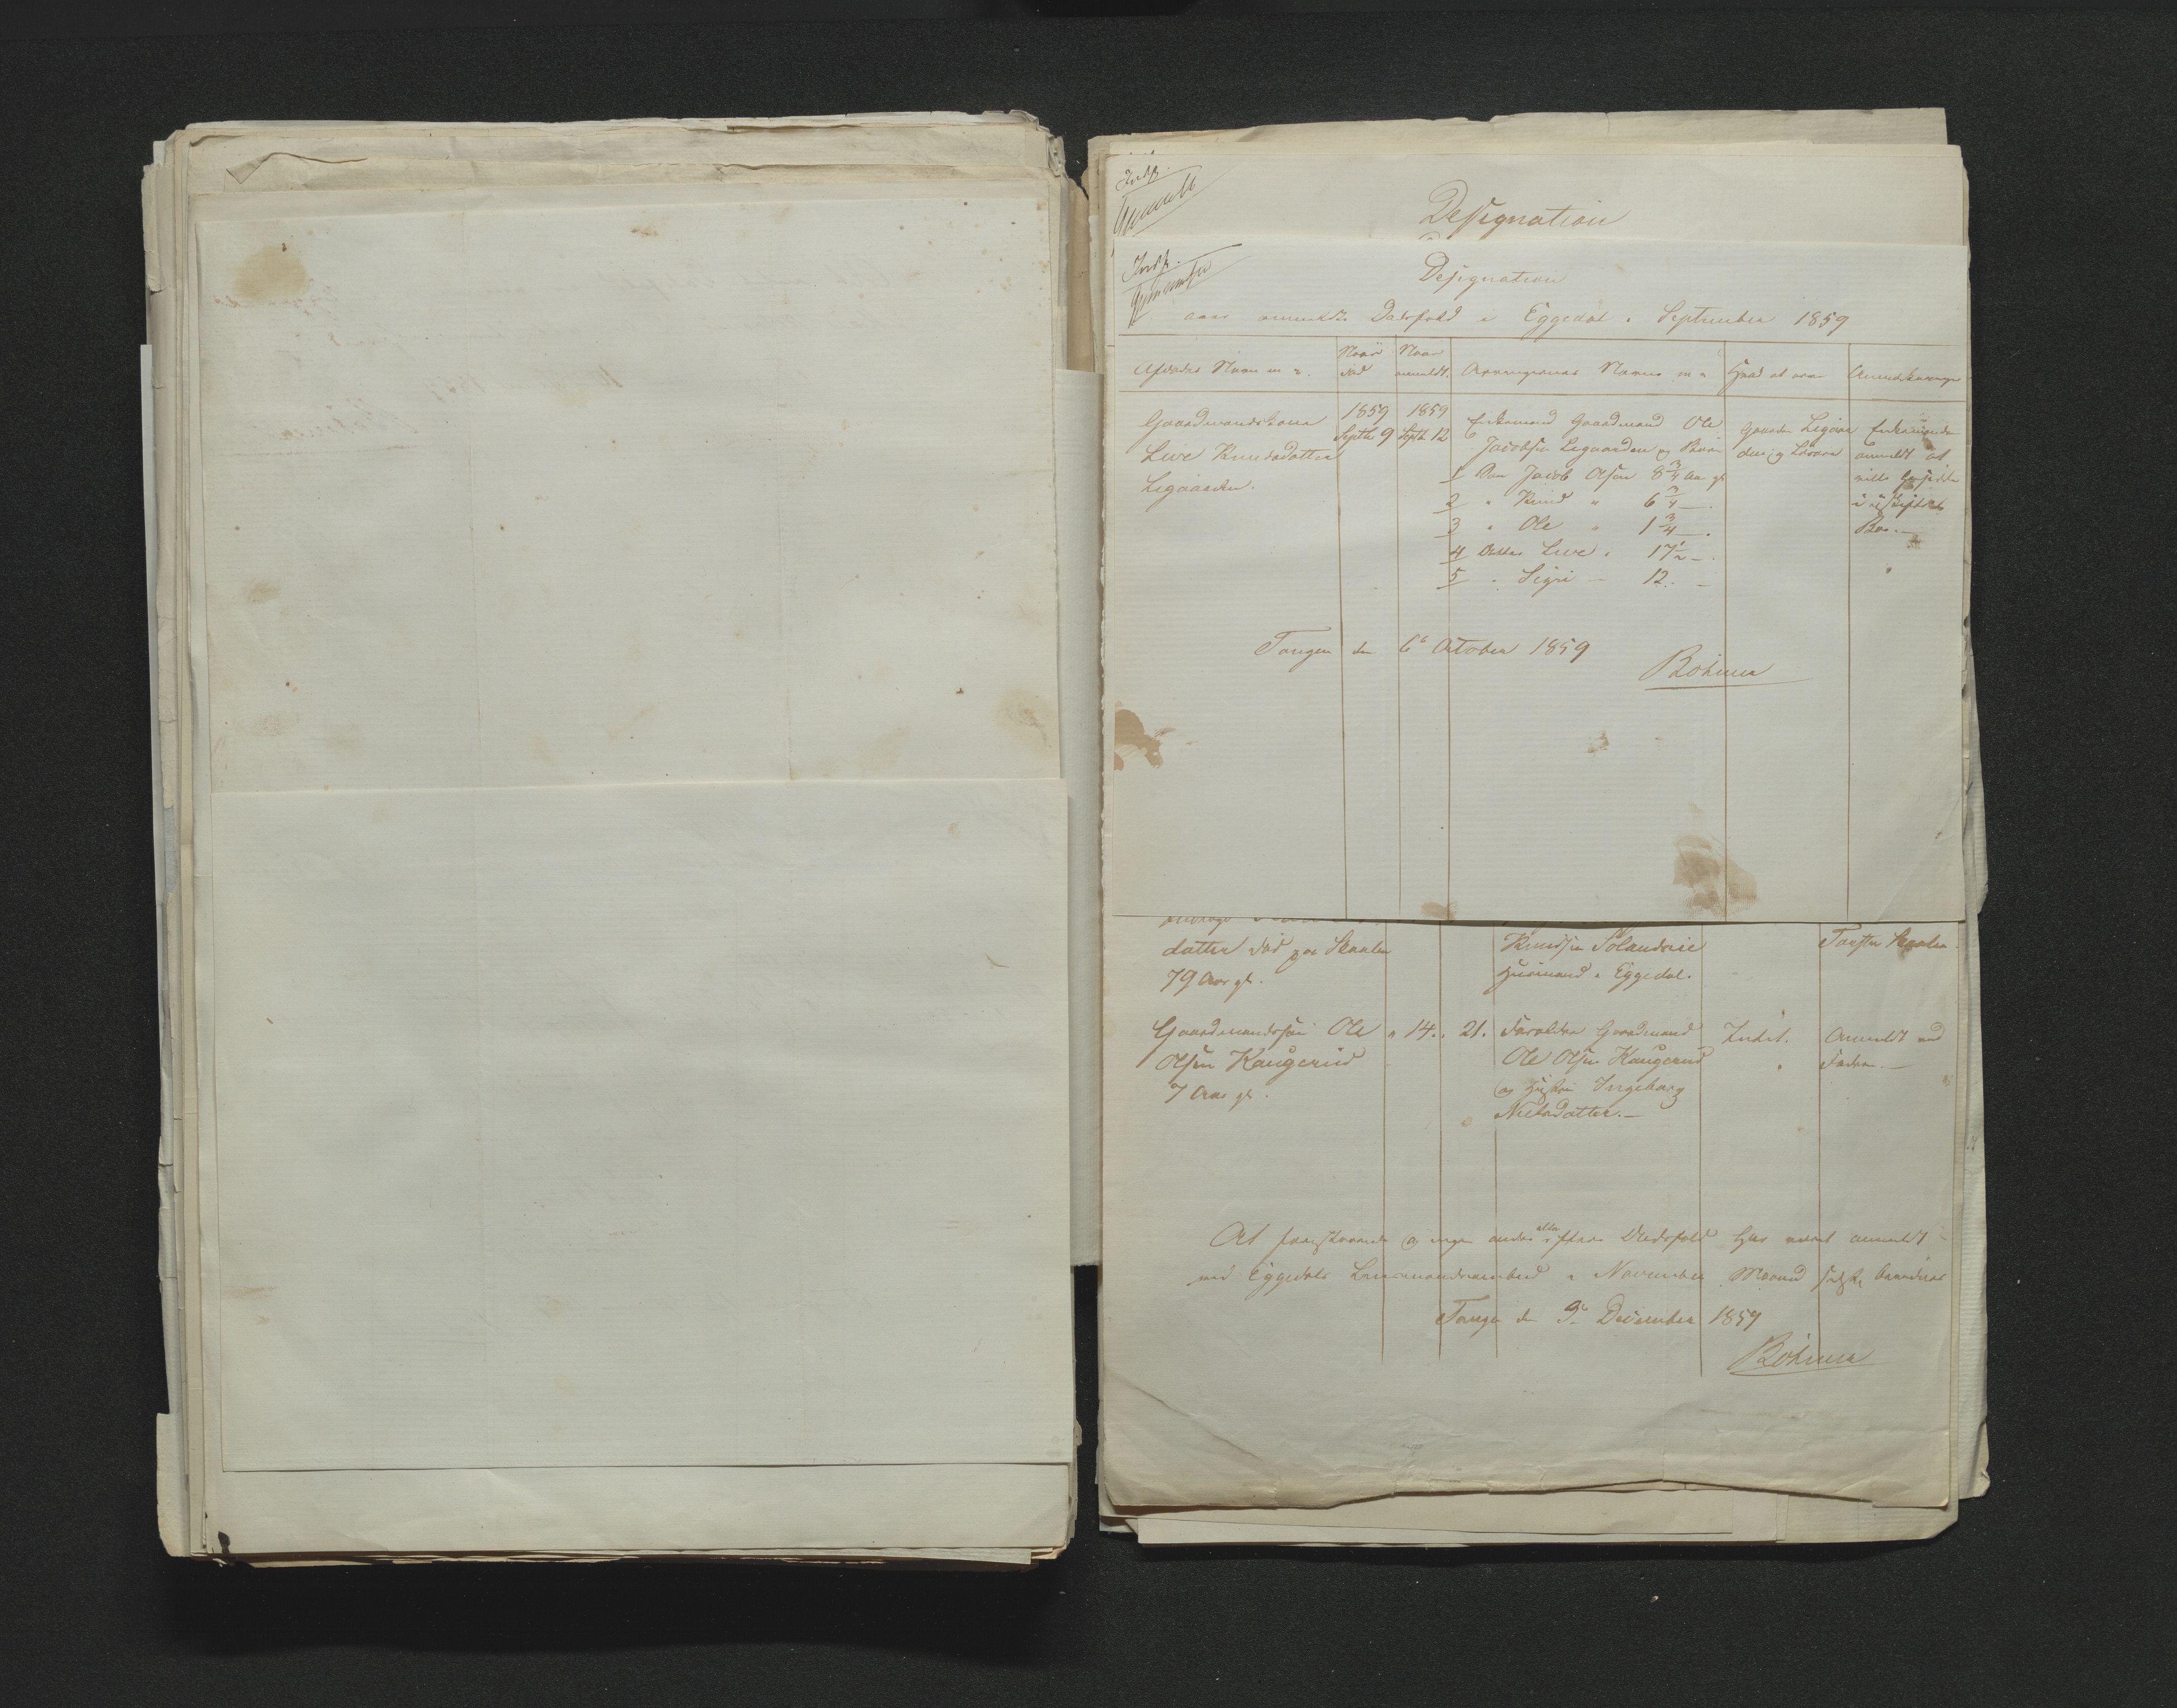 Designation
Designation
over anmeldte Dødsfald i Eggedal i September 1859
Afdødes Navn m. v.
Naar død
Naar anmeldt.
Arvingernes Navne m v
Hvad at arve
Anmærkninger
Gaardmandskone
Live Knudsdatter
Ligaarden.
1859
Septb 9
1859
Septb 12
Enkemand Gaardmand Ole
Jacobsen Ligaarden og Børn
1 Søn Jacob Olsen 8 3/4 Aar gl
2 " Knud " 6 3/4 —.
3 " Ole " 1 3/4 —.
4 Datter Live " 17 1/2 —.
5 " Sigri — 12. —
Gaarden Ligaar
den og Løsøre
Enkemanden
anmeldt at
ville hensidde
i uskiftet
Boe.—
Tangen den 6 October 1859
Böhmer
datter død paa Skaalen
79 Aar gl.
Knudsen
Huusmand i Eggedal.
Gaardmandssøn Ole
Olsen Kaugerud
7 Aar gl.
" 14.
21.
Forældre Gaardmand
Ole Olsen Kaugerud
og Hustru Ingeborg
Nielsdatter.—
Intet.
Anmeldt ved
Faderen.—
At foranstaaende og ingen andre eller flere Dødsfald har været anmeldt
ved Eggedals Lensmandsembed i November Maaned
Tangen den 9 December 1859
Böhmer